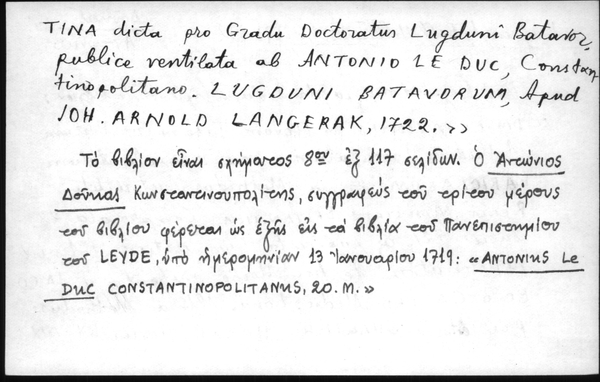 TINA dicta pro Gradu Doctoratus Lugduni Batavor,
publice ventilata ab ANTONIO LE DUC, Constan
tinopolitano. LUGDUNI BATAVORUM, Apud
IOH. ARNOLD LANGERAK, 1722.»
Τὸ βιβλίον εἶναι σχήματος 8ον ἐξ 117 σελίδων. Ὁ Ἀντώνιος
Δούκας Κωνσταντινουπολίτης, συγγραφεὺς τοῦ τρίτου μέρους
τοῦ βιβλίου φέρεται ὡς ἑξῆς εἰς τὰ βιβλία τοῦ Πανεπιστημίου
τοῦ LEYDE, ὑπὸ ἡμερομηνίαν 13 Ἰανουαρίου 1719: «ANTONIUS Le
DUC CONSTANTINOPOLITANUS, 20. M.»